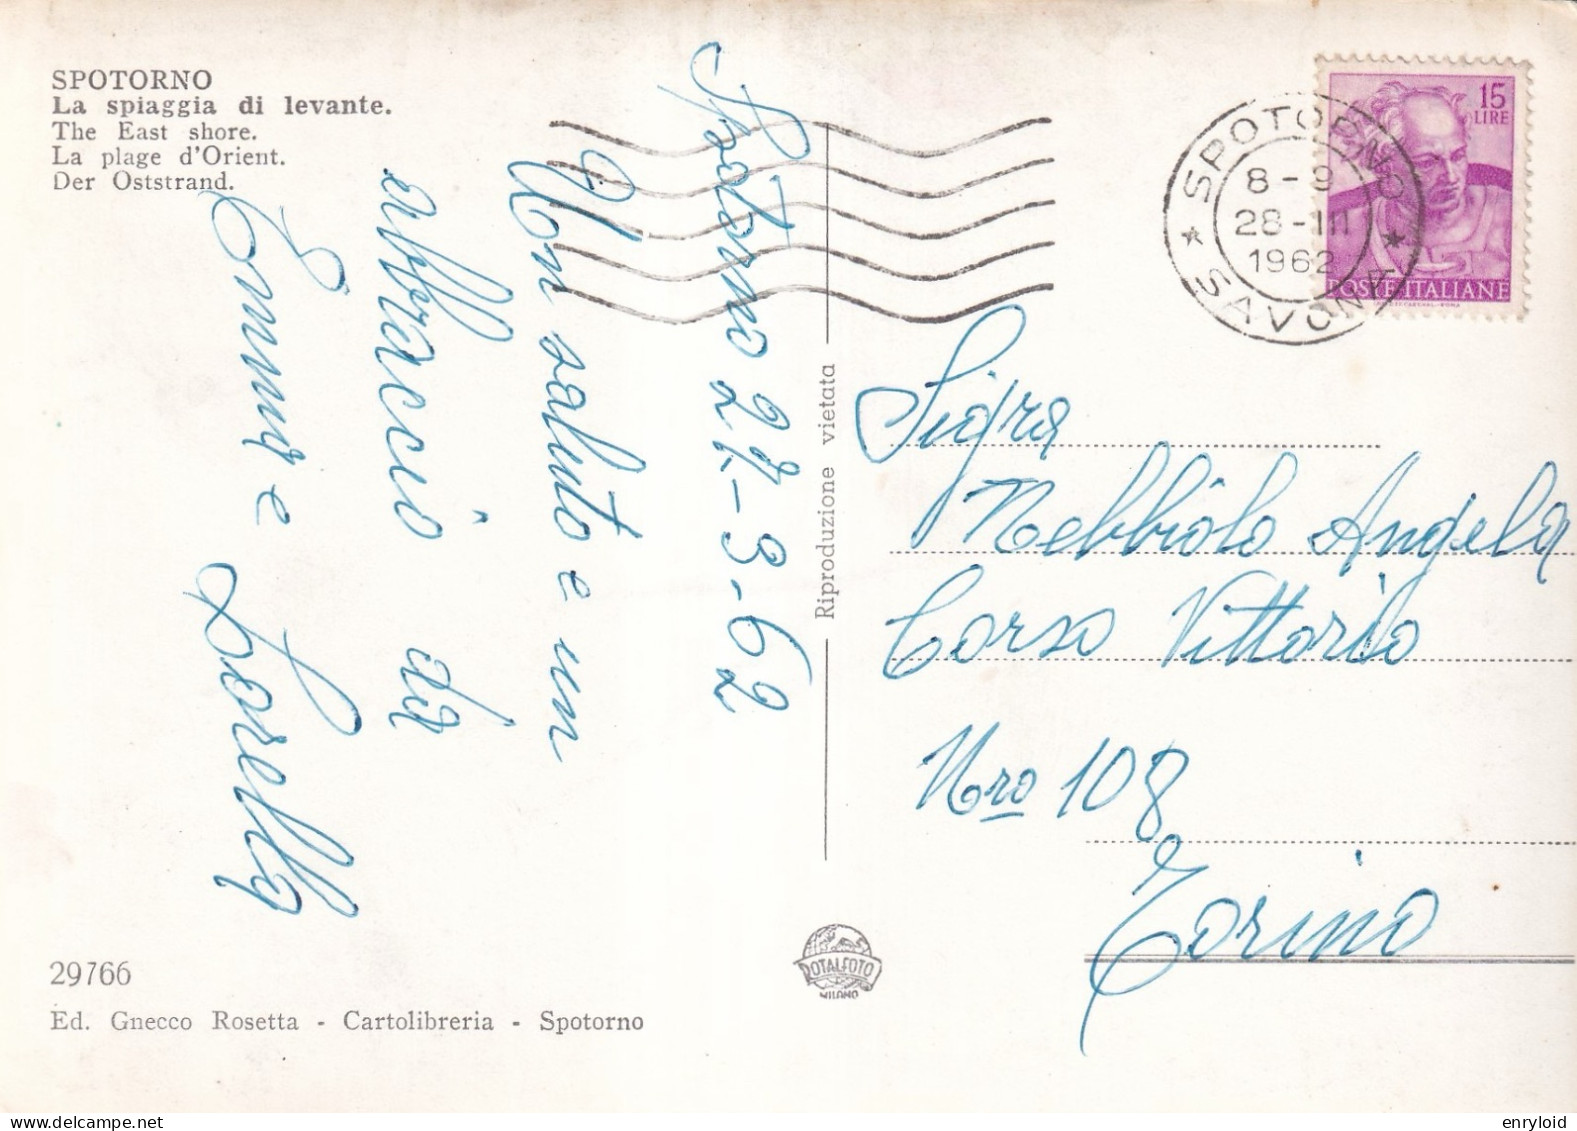 SPOTORNO
La spiaggia di levante.
The East shore.
La plage d'Orient.
Der Oststrand.
Spotorno 27-3-62
Un saluto e un
abbraccio da
Emma e Lorella
Riproduzione vietata
SPOTORNO
8-9
28-III
1962
* SAVONA *
15
LIRE
POSTE ITALIANE
Sigra
Nebbiolo Angela
Corso Vittorio
Nro 108
Torino
ROTALFOTO
MILANO
29766
Ed. Gnecco Rosetta - Cartolibreria - Spotorno
enryloid